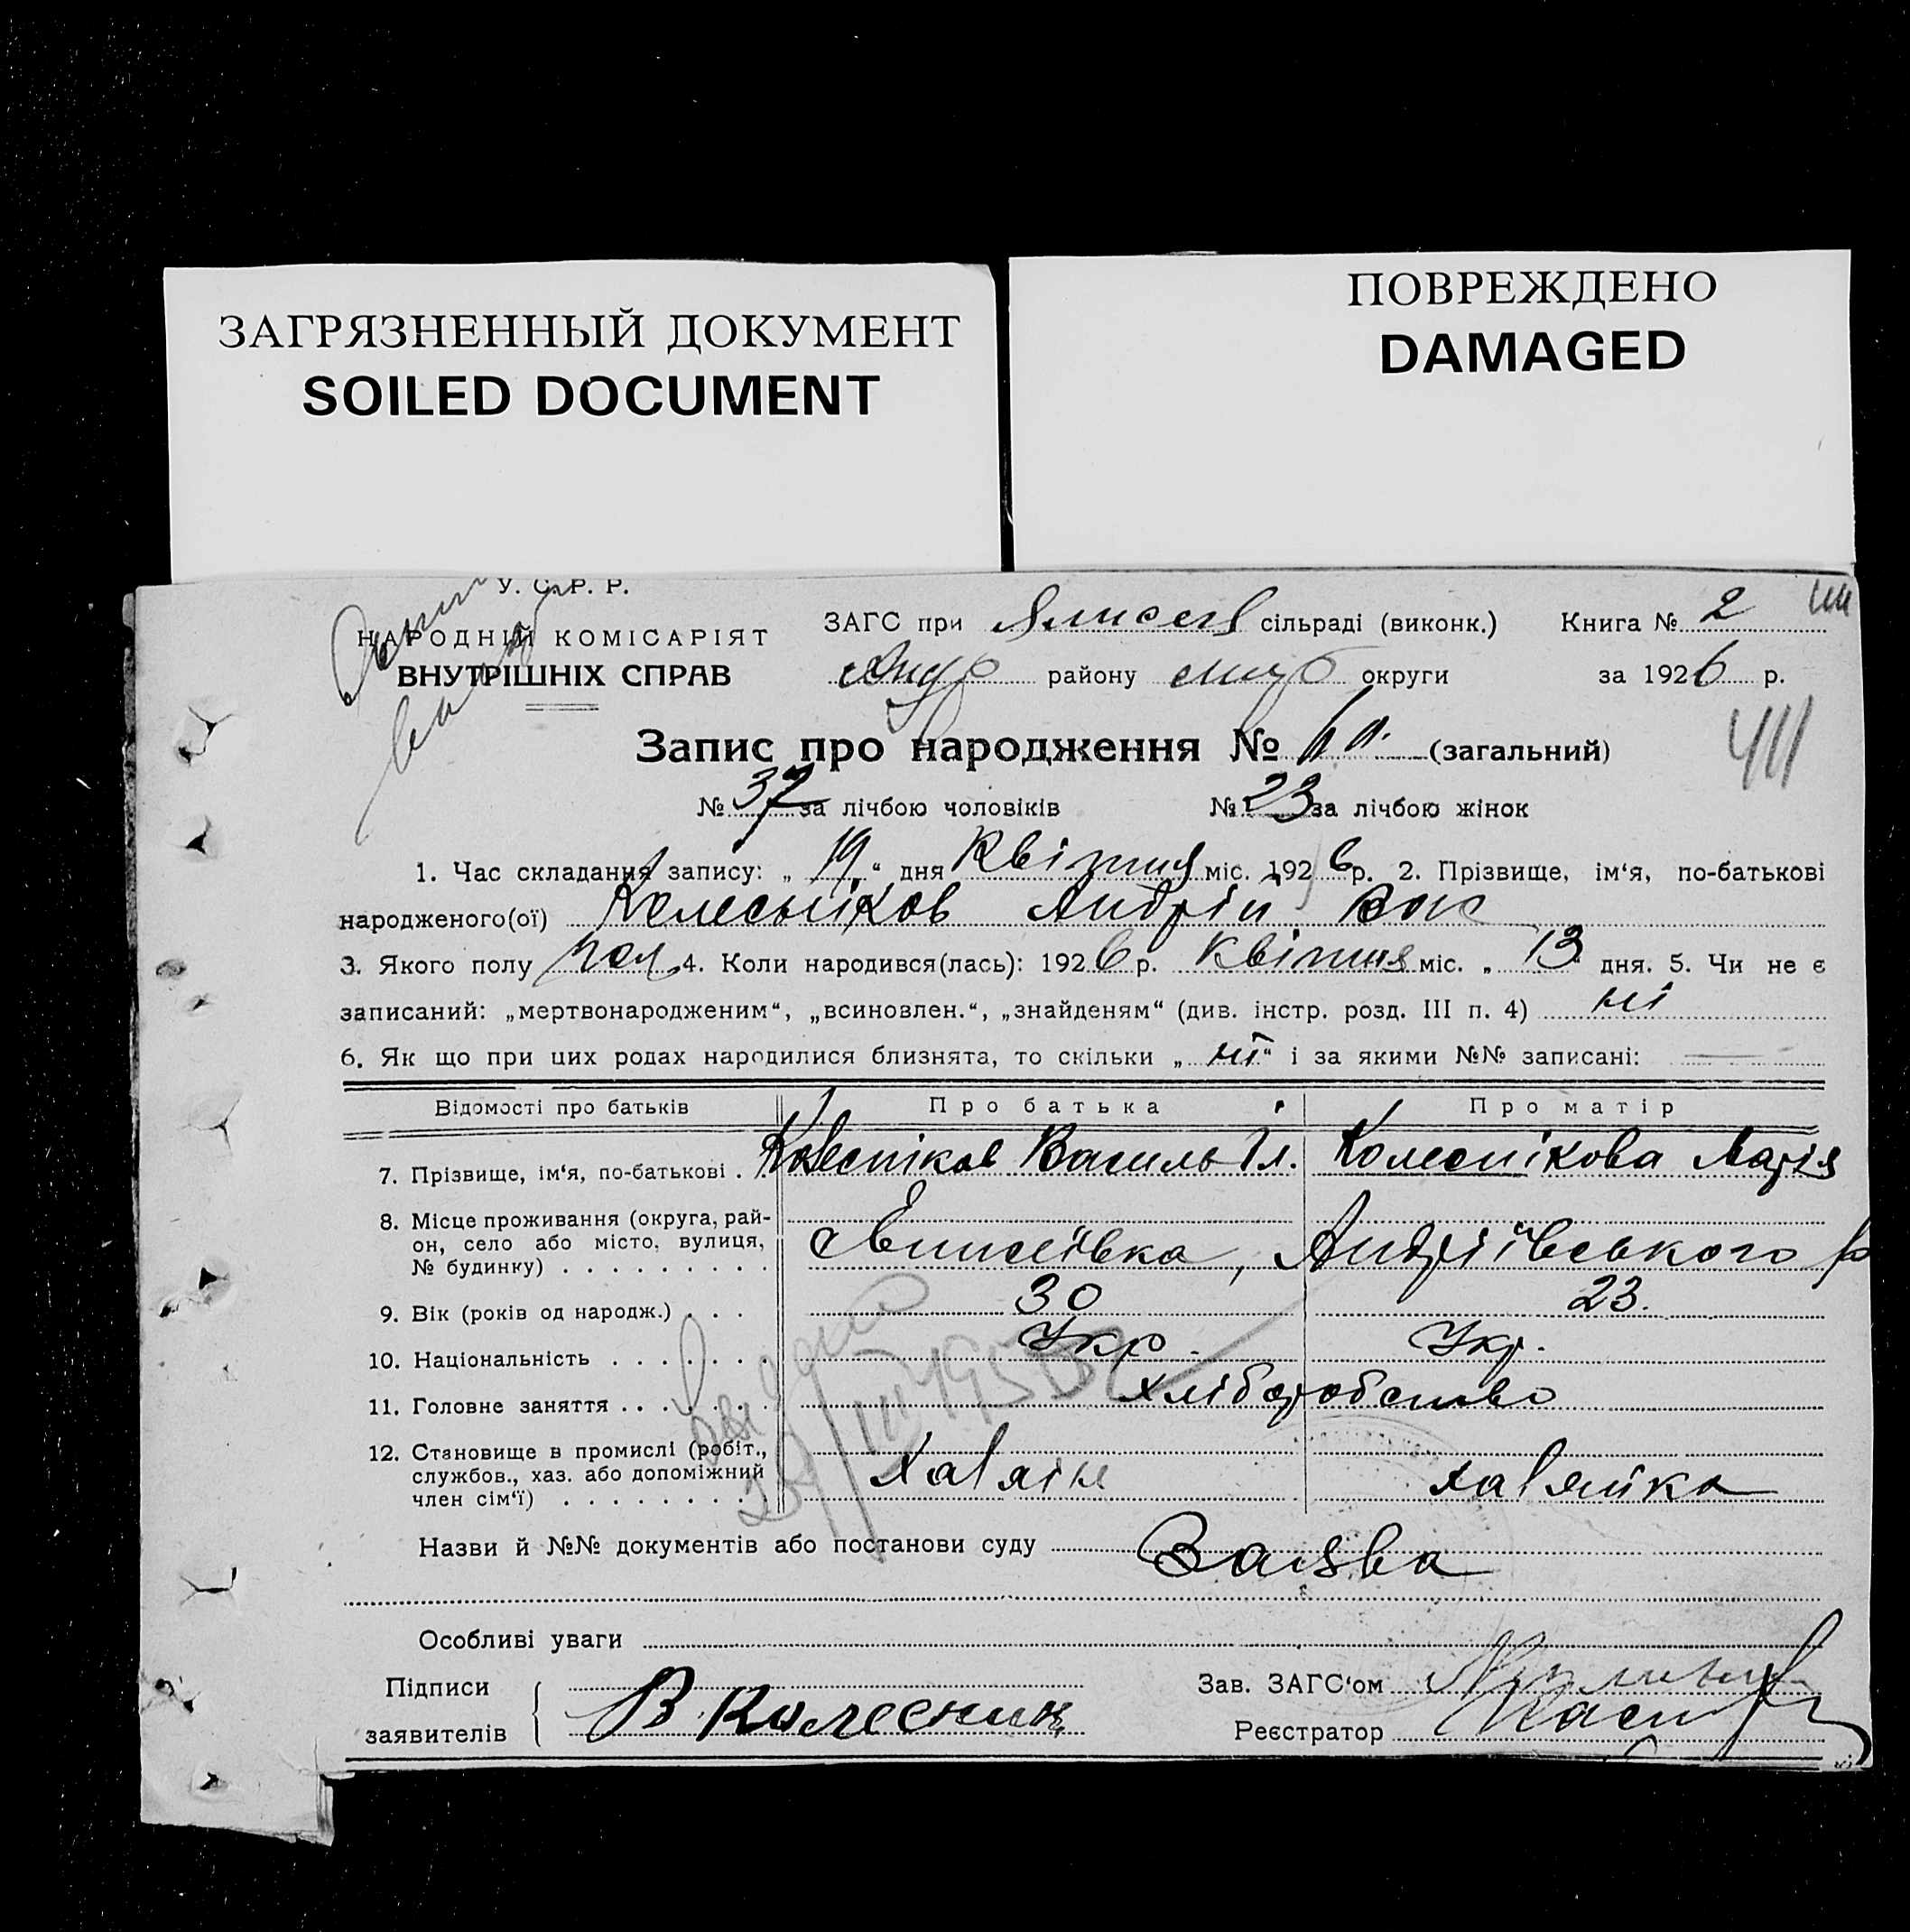 ЗАГРЯЗНЕННЫЙ ДОКУМЕНТ
SOILED DOCUMENT
ПОВРЕЖДЕНО
DAMAGED
У. С. Р. Р.
НАРОДНІЙ КОМІСАРІЯТ
ВНУТРІШНІХ СПРАВ
ЗАГС при сільраді (виконк.) Книга № 2
Андр району округи за 1926 р.
Запис про народження № (загальний)
411
№ 37 за лічбою чоловіків № 23 за лічбою жінок
1. Час складання запису: „ 19 “ дня Квітня міс. 1926 р. 2. Прізвище, ім‘я, по-батькові
народженого(ої) Колесніков Андрій Вас
3. Якого полу чол 4. Коли народився(лась): 1926 р. Квітня міс. „ 13 “ дня. 5. Чи не є
записаний: „мертвонародженим“, „всиновлен.“, „знайденям“ (див. інстр. розд. III п. 4) ні
6. Як що при цих родах народилися близнята, то скільки „ ні “ і за якими №№ записані: —
Відомості про батьків Про батька Про матір
7. Прізвище, ім‘я, по-батькові . Колесніков Василь Іл. Колеснікова Марія
8. Місце проживання (округа, рай-
он, село або місто, вулиця,
№ будинку) . . . . . . . . . Єлисеївка, Андріївського р
9. Вік (років од народж.) . . . 30 23.
10. Національність . . . . . . . Укр. Укр.
11. Головне заняття . . . . . . . хліборобство
12. Становище в промислі (робіт.,
службов., хаз. або допоміжний
член сім‘ї) . . . . . . . . . Хазяїн хазяйка
Назви й №№ документів або постанови суду Заява
Особливі уваги
Підписи
заявителів В Колесник
Зав. ЗАГС‘ом
Реєстратор